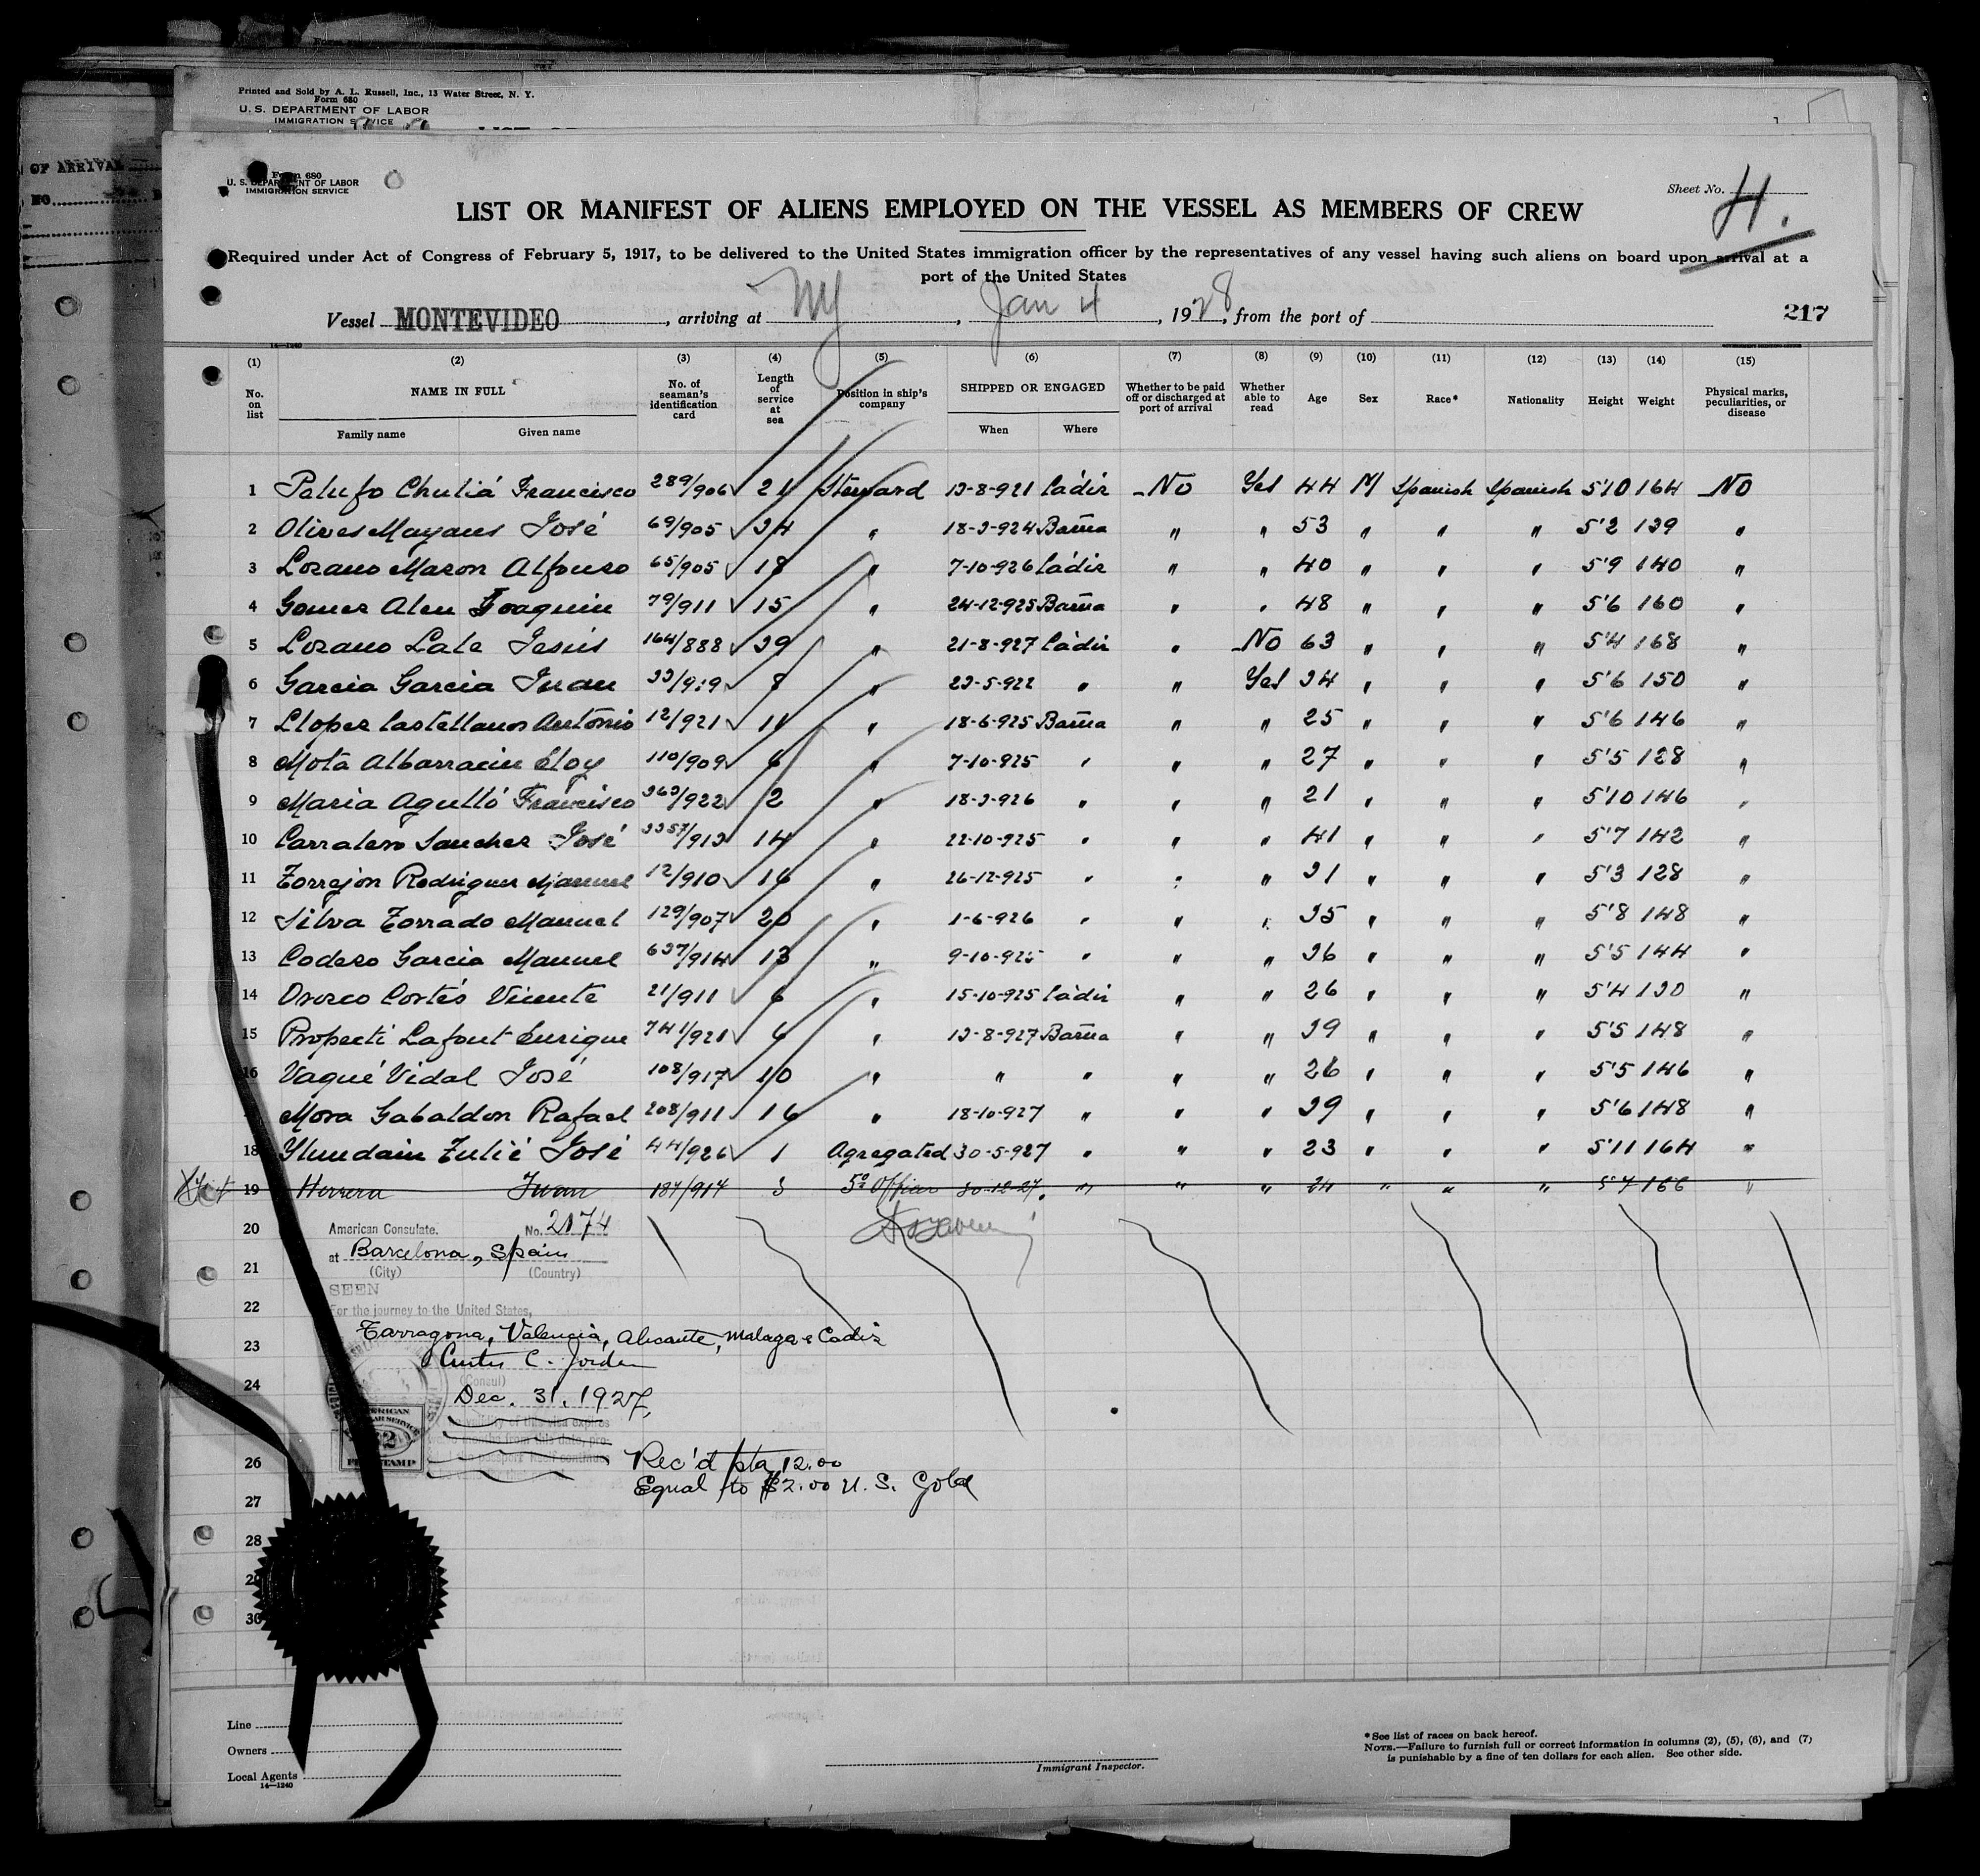 Printed and Sold by A. L. Russell, Inc., 13 Water Street, N. Y.
Form 680
U. S. DEPARTMENT OF LABOR
IMMIGRATION SERVICE
OF ARRIVAL
NO.
Form 680
U. S. DEPARTMENT OF LABOR
IMMIGRATION SERVICE
Sheet No. 4.
LIST OR MANIFEST OF ALIENS EMPLOYED ON THE VESSEL AS MEMBERS OF CREW
Required under Act of Congress of February 5, 1917, to be delivered to the United States immigration officer by the representatives of any vessel having such aliens on board upon arrival at a
port of the United States
Vessel MONTEVIDEO, arriving at NY, Jan 4, 1928, from the port of
217
14—1240
(1) (2) (3) (4) (5) (6) (7) (8) (9) (10) (11) (12) (13) (14) (15)
No. on list NAME IN FULL Family name Given name No. of seaman's identification card Length of service at sea Position in ship's company SHIPPED OR ENGAGED When Where Whether to be paid off or discharged at port of arrival Whether able to read Age Sex Race* Nationality Height Weight Physical marks, peculiarities, or disease
1 Pelufo Chuliá Francisco 289/906 21 Steward 13-8-921 Cádiz No Yes 44 M Spanish Spanish 5'10 164 No
2 Olives Mayans José 69/905 34 " 18-3-924 Barña " " 53 " " " 5'2 139 "
3 Lozano Mason Alfonso 65/905 18 " 7-10-926 Cádiz " " 40 " " " 5'9 140 "
4 Gomez Alen Joaquin 79/911 15 " 24-12-925 Barña " " 48 " " " 5'6 160 "
5 Lozano Lale Jesús 164/888 39 " 21-8-927 Cádiz " No 63 " " " 5'4 168 "
6 Garcia Garcia Juan 33/919 8 " 23-5-922 " " Yes 34 " " " 5'6 150 "
7 Llopez Castellanos Antonio 12/921 11 " 18-6-925 Barña " " 25 " " " 5'6 146 "
8 Mota Albarracin Eloy 110/909 6 " 7-10-925 " " " 27 " " " 5'5 128 "
9 Maria Agulló Francisco 363/922 2 " 18-3-926 " " " 21 " " " 5'10 146 "
10 Carralero Sanchez José 3357/913 14 " 22-10-925 " " " 41 " " " 5'7 142 "
11 Torrejon Rodriguez Manuel 12/910 16 " 26-12-925 " " " 31 " " " 5'3 128 "
12 Silva Torrado Manuel 129/907 20 " 1-6-926 " " " 35 " " " 5'8 148 "
13 Codeso Garcia Manuel 637/914 13 " 9-10-925 " " " 36 " " " 5'5 144 "
14 Orozco Cortés Vicente 21/911 6 " 15-10-925 Cádiz " " 26 " " " 5'4 130 "
15 Propecti Lafont Enrique 741/921 6 " 13-8-927 Barña " " 39 " " " 5'5 148 "
16 Vagué Vidal José 108/917 10 " " " " " 26 " " " 5'5 146 "
Mora Gabaldon Rafael 208/911 16 " 18-10-927 " " " 39 " " " 5'6 148 "
18 Ylundain Zulié José 44/926 1 Agregated 30-5-927 " " " 23 " " " 5'11 164 "
19 Herrera Juan 187/914 3 5º Officer 30-12-27 " " " 24 " " " 5'7 166 "
20 American Consulate. No. 2174
at Barcelona, Spain
21 (City) (Country)
SEEN
22 For the journey to the United States,
23 Tarragona, Valencia, Alicante, Malaga & Cadiz
Curtis C. Jordan
24 (Consul)
Dec. 31, 1927,
AMERICAN
FEE STAMP
26 Rec'd pta 12.00
Equal to $2.00 U. S. Gold
27
28
29
30
Line
Owners
Local Agents
14—1240
Immigrant Inspector.
* See list of races on back hereof.
NOTE.—Failure to furnish full or correct information in columns (2), (5), (6), and (7)
is punishable by a fine of ten dollars for each alien. See other side.